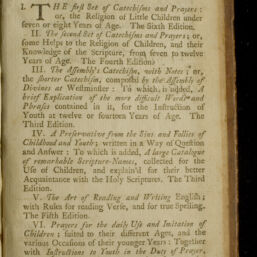 I. THE first Set of Catechisms and Prayers:
or, the Religion of Little Children under
seven or eight Years of Age. The Sixth Edition.
II. The second Set of Catechisms and Prayers; or,
some Helps to the Religion of Children, and their
Knowledge of the Scripture, from seven to twelve
Years of Age. The Fourth Edition.
III. The Assembly's Catechism, with Notes; or,
the shorter Catechism, composed by the Assembly of
Divines at Westminster: To which, is added, A
brief Explication of the more difficult Words and
Phrases contained in it, for the Instruction of
Youth at twelve or fourteen Years of Age. The
Third Edition.
IV. A Preservative from the Sins and Follies of
Childhood and Youth; written in a Way of Question
and Answer: To which is added, A large Catalogue
of remarkable Scripture-Names, collected for the
Use of Children, and explain'd for their better
Acquaintance with the Holy Scriptures. The Third
Edition.
V. The Art of Reading and Writing English;
with Rules for reading Verse, and for true Spelling.
The Fifth Edition.
VI. Prayers for the daily Use and Imitation of
Children; suited to their different Ages, and the
various Occasions of their younger Years: Together
with Instructions to Youth in the Duty of Prayer,